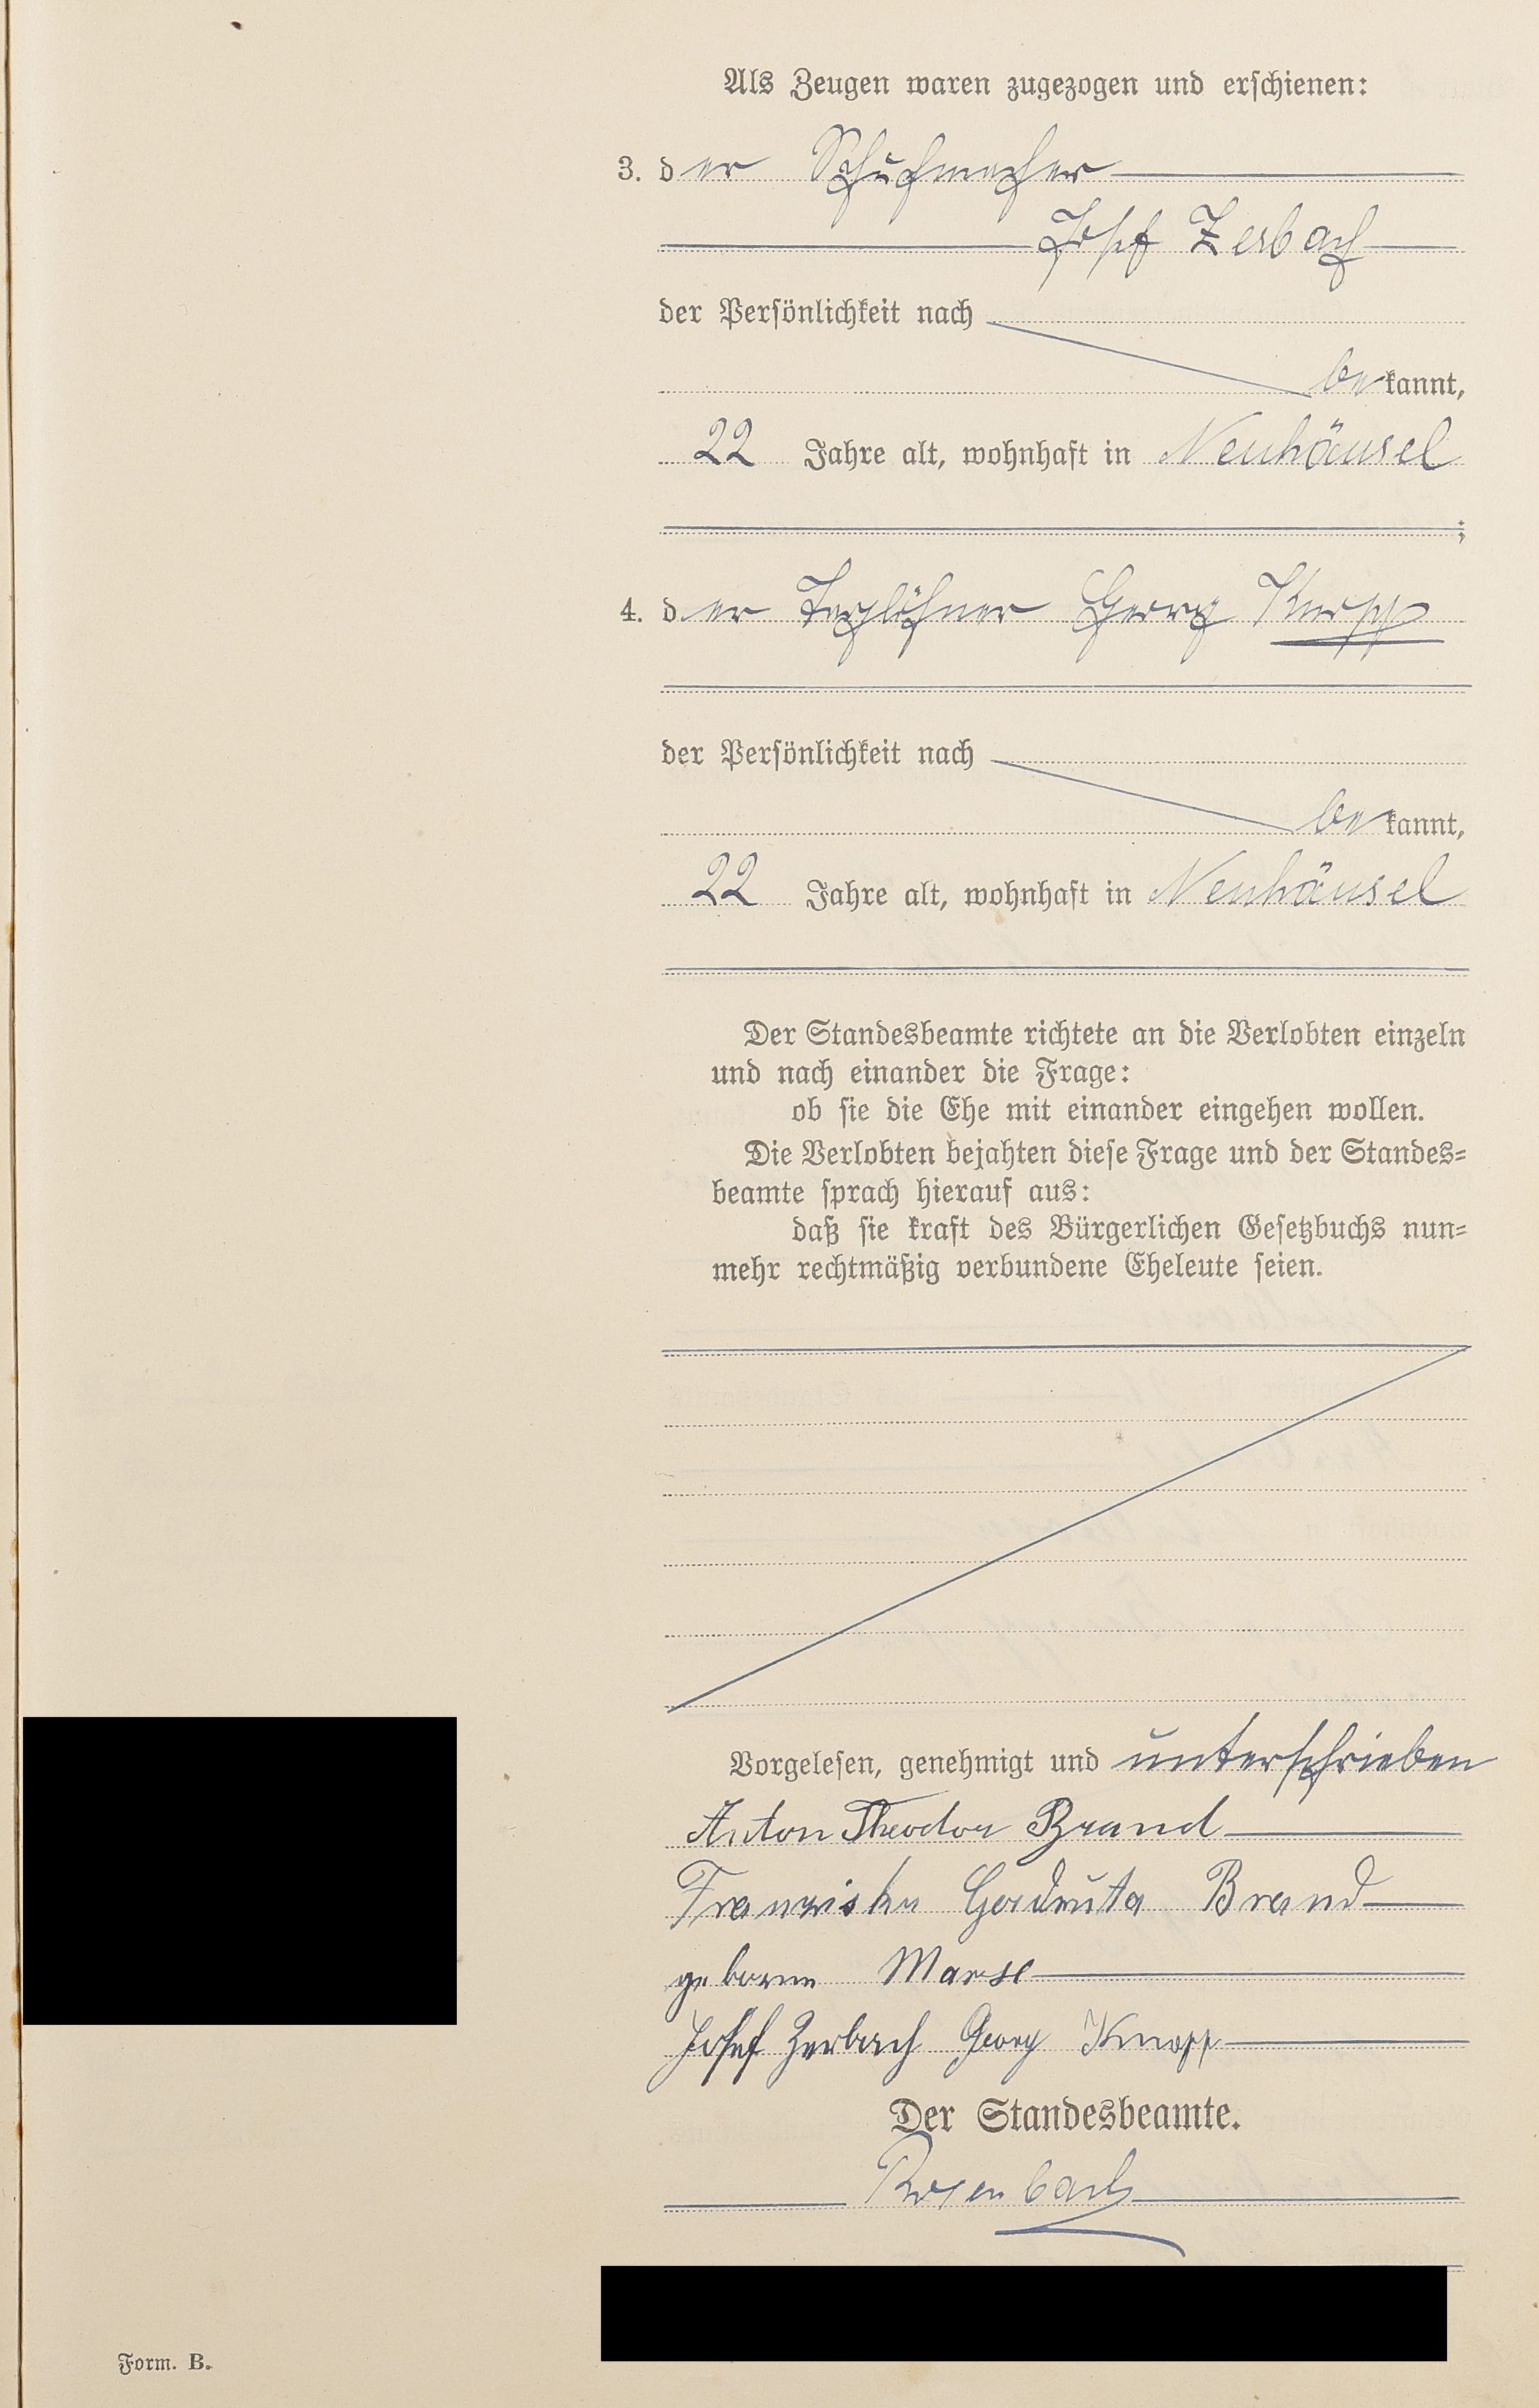 Als Zeugen waren zugezogen und erschienen:
3. der Schuhmacher
Josef Zerbach
der Persönlichkeit nach
bekannt,
22 Jahre alt, wohnhaft in Neuhäusel
;
4. der Taglöhner Georg Knopp
der Persönlichkeit nach
bekannt,
22 Jahre alt, wohnhaft in Neuhäusel
Der Standesbeamte richtete an die Verlobten einzeln
und nach einander die Frage:
ob sie die Ehe mit einander eingehen wollen.
Die Verlobten bejahten diese Frage und der Standes-
beamte sprach hierauf aus:
daß sie kraft des Bürgerlichen Gesetzbuchs nun-
mehr rechtmäßig verbundene Eheleute seien.
Vorgelesen, genehmigt und unterschrieben
Anton Theodor Brand
Franziska Gerdruta Brand
geborene
Josef Zerbach Georg Knopp
Der Standesbeamte.
Rosenbach
Form. B.